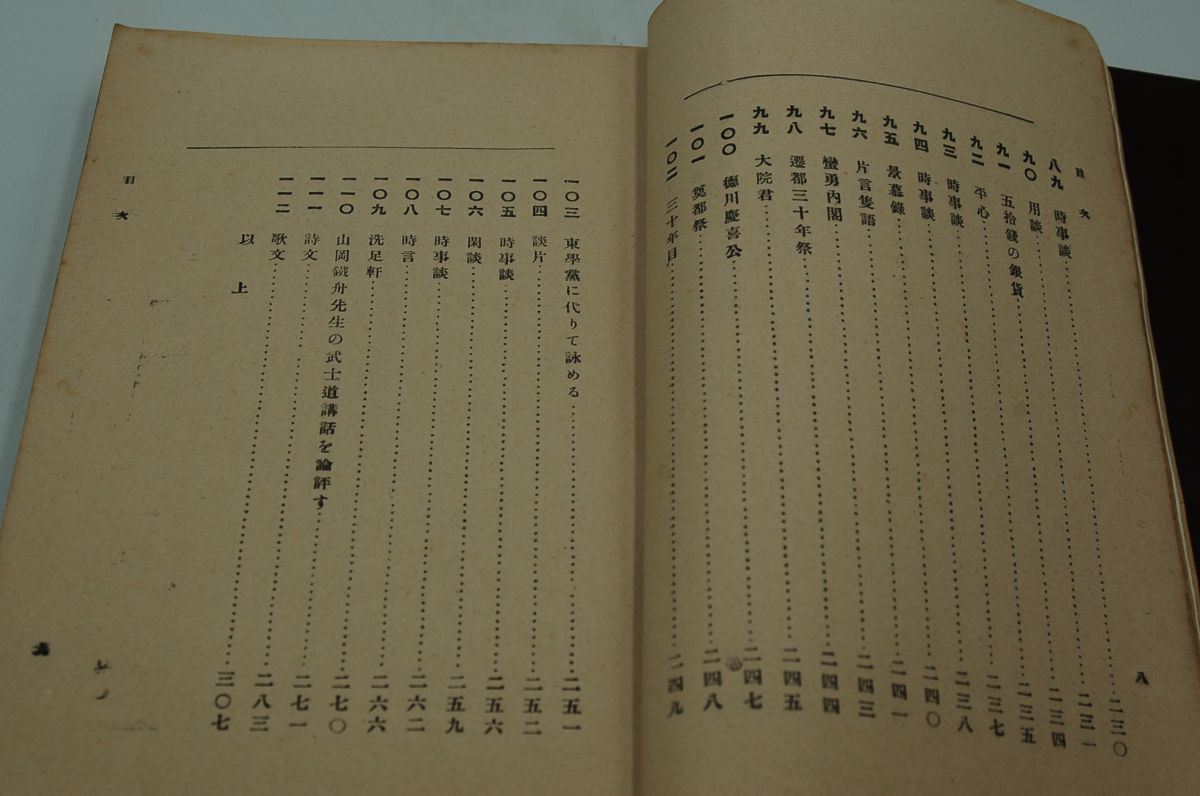 目次
八
八九 時事談……二三〇
九〇 用談……二三一
九一 五拾錢の銀貨……二三四
九二 平心……二三五
九三 時事談……二三七
九四 時事談……二三八
九五 景慕錄……二四〇
九六 片言隻語……二四一
九七 蠻勇內閣……二四三
九八 遷都三十年祭……二四四
九九 大院君……二四五
一〇〇 德川慶喜公……二四七
一〇一 奠都祭……二四八
一〇二 三十年目……二四九
一〇三 東學黨に代りて詠める……二五一
一〇四 談片……二五二
一〇五 時事談……二五六
一〇六 閑談……二五九
一〇七 時事談……二六二
一〇八 時言……二六六
一〇九 洗足軒……二七〇
一一〇 山岡鐵舟先生の武士道講話を論評す……二七一
一一一 詩文……二八三
一一二 歌文……三〇七
以上
目次